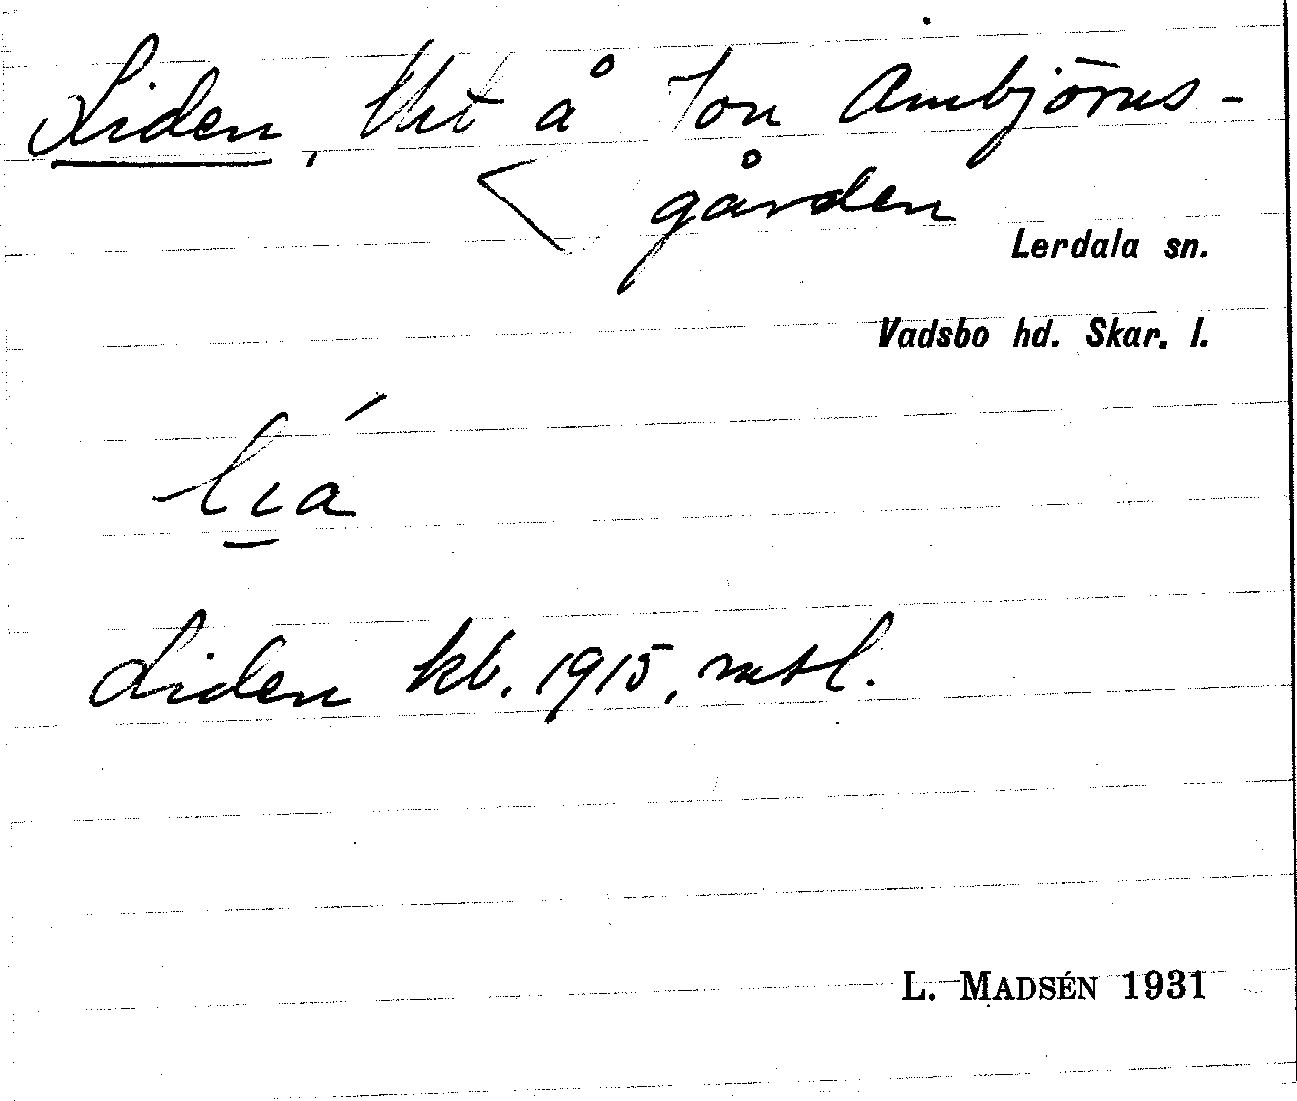 Liden, lht å Ton Ambjörns-
gården
Lerdala sn.
Vadsbo hd. Skar. l.
lia
Liden kb. 1915, mtl.
L. MADSÉN 1931